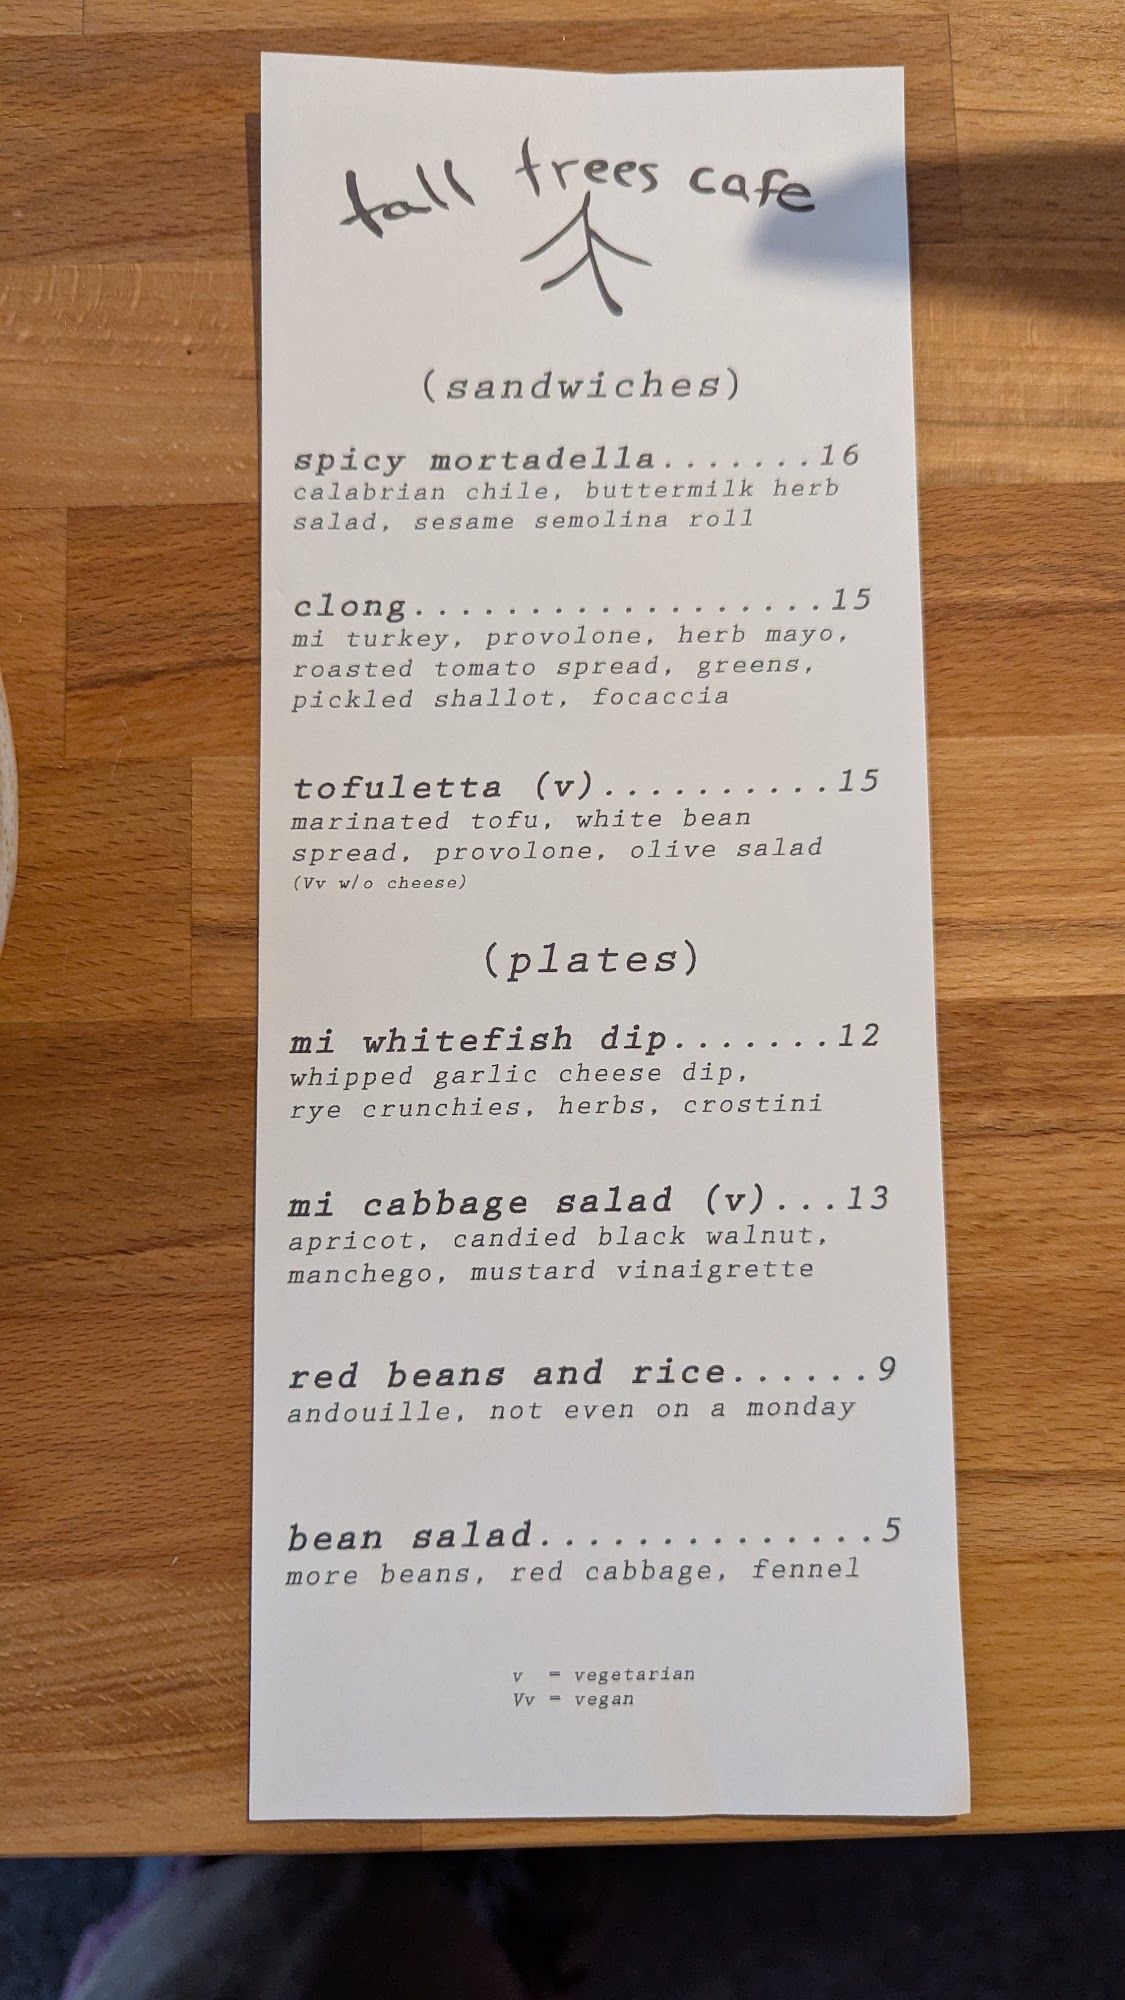 tall trees cafe
(sandwiches)
spicy mortadella.......16
calabrian chile, buttermilk herb
salad, sesame semolina roll
clong..................15
mi turkey, provolone, herb mayo,
roasted tomato spread, greens,
pickled shallot, focaccia
tofuletta (v)..........15
marinated tofu, white bean
spread, provolone, olive salad
(Vv w/o cheese)
(plates)
mi whitefish dip.......12
whipped garlic cheese dip,
rye crunchies, herbs, crostini
mi cabbage salad (v)...13
apricot, candied black walnut,
manchego, mustard vinaigrette
red beans and rice......9
andouille, not even on a monday
bean salad..............5
more beans, red cabbage, fennel
v  = vegetarian
Vv = vegan